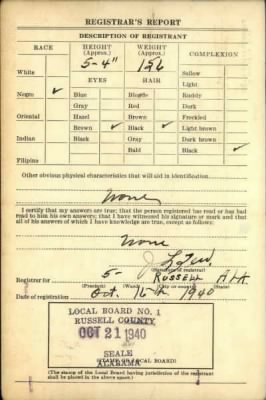 REGISTRAR'S REPORT
DESCRIPTION OF REGISTRANT
RACE HEIGHT (Approx.) WEIGHT (Approx.) COMPLEXION
5-4" 156
White EYES HAIR Sallow
Light
Negro ✓ Blue Blonde Ruddy
Gray Red Dark
Oriental Hazel Brown Freckled
Brown ✓ Black ✓ Light brown
Indian Black Gray Dark brown
Bald Black ✓
Filipino
Other obvious physical characteristics that will aid in identification
None
I certify that my answers are true; that the person registered has read or has had
read to him his own answers; that I have witnessed his signature or mark and that
all of his answers of which I have knowledge are true, except as follows:
None
(Signature of registrar)
Registrar for 5- RUSSELL ALA
(Precinct) (Ward) (City or county) (State)
Date of registration Oct. 16th 1940
LOCAL BOARD NO. 1
RUSSELL COUNTY
OCT 21 1940
SEALE
ALABAMA
(STAMP OF LOCAL BOARD)
(The stamp of the Local Board having jurisdiction of the registrant
shall be placed in the above space.)